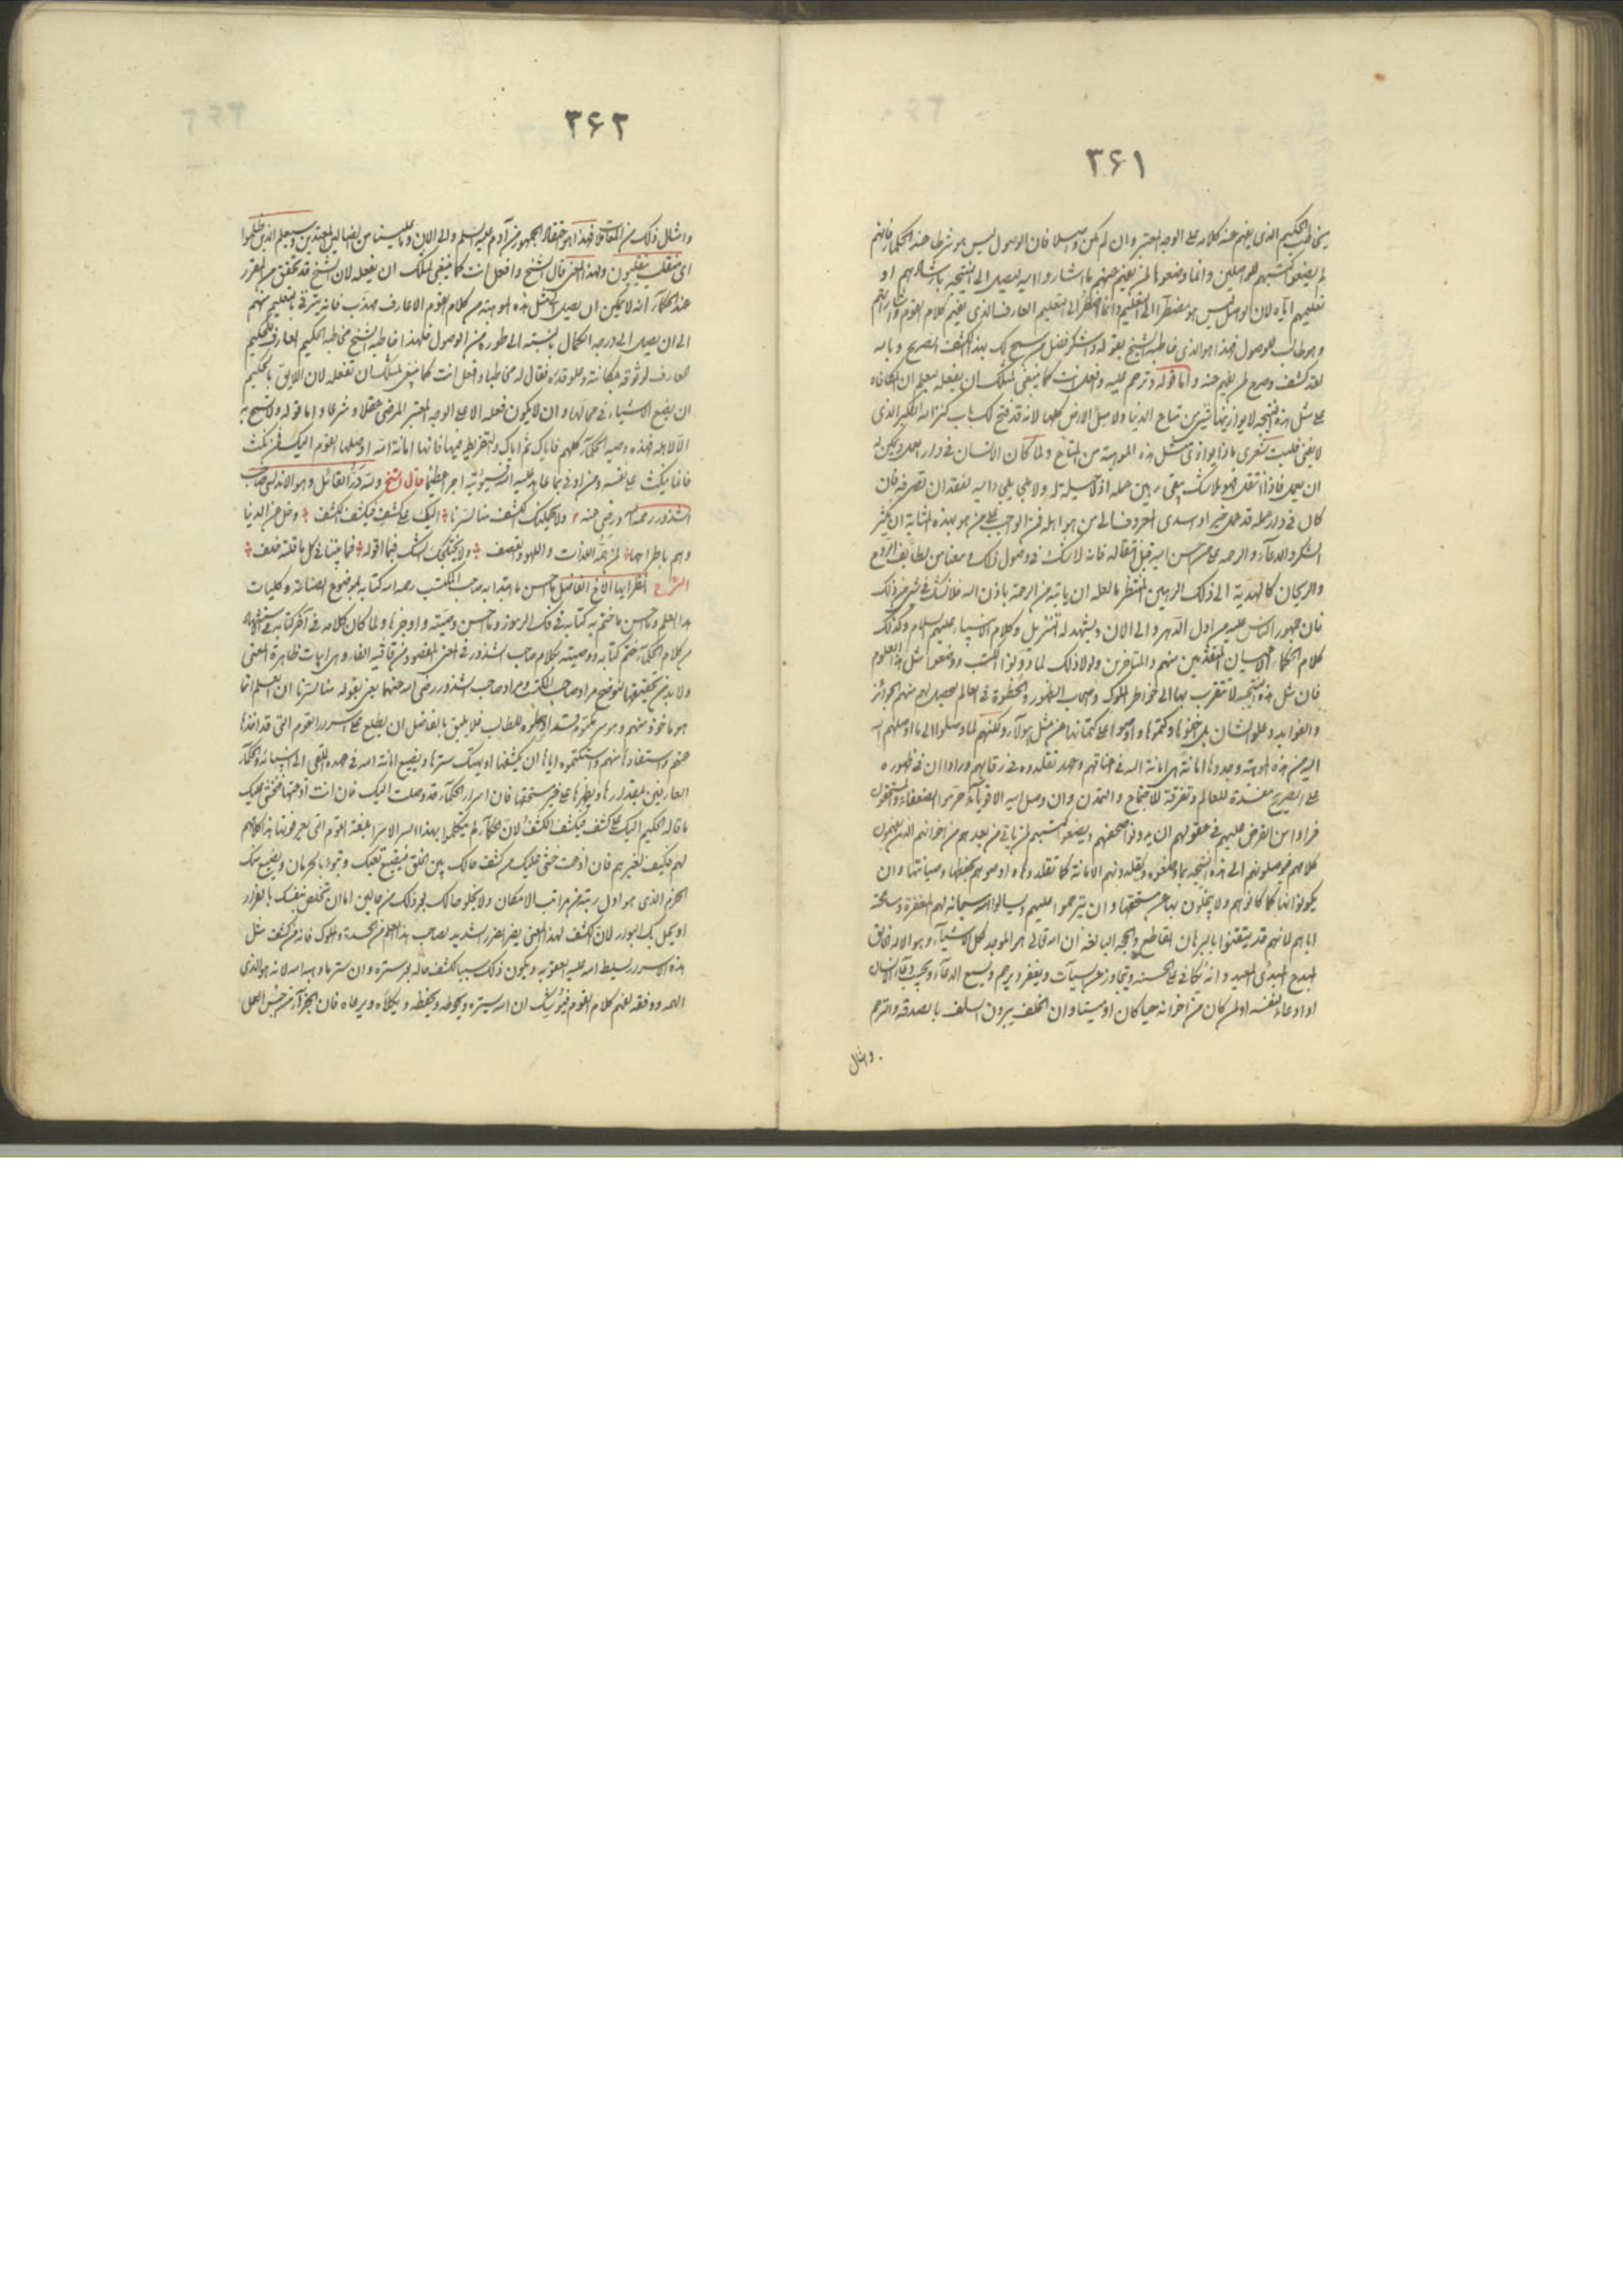 ۳۶۱
يخاطب الحكيم الذى يفهم عنه كلامه على الوجه المعتبر وان لم يكن واصلا فان الوصول ليس هو شرطا عند الحكماء فانهم
لم يضعوا كتبهم للواصلين وانما وضعوها لمن يفهم عنهم ما اشاروا اليه ليصل الى النتيجة بارشادهم او
تعليمهم اياه لان الواصل ليس هو مضطرا الى التعليم وانما المضطر الى التعليم العارف الذى يفهم كلام القوم
وهو طالب للوصول فهذا هو الذى خاطبه الشيخ بقوله واشكر فضل من سمح لك بهذا الكشف الصريح وبالله
لقد كشف وصرح لمن يفهم عنه واما قوله وترحم عليه وافعل انت كما ينبغى لمثلك ان يفعله يعلم ان المكافاه
على مثل هذه النتيجه لا يوازيها شئ من متاع الدنيا ولا مثل الارض كلها لانه قد فتح لك باب كنز الله الكبير الذى
لا يفنى فليت شعرى ماذا يوازى مثل هذه الموهبة من المتاع ولما كان الانسان فى دار العمل ويمكن له
ان يعمل فاذا انتقل فهو بلا شك يبقى رهين عمله اذ لا حيلة له ولا ملجا يلجا اليه لفقدان تصرفه فان
كان فى دار عمله قد عمل خير او اسدى المعروف الى من هو اهله فمن الواجب على من هو بهذه المثابة ان يكثر
الشكر والدعاء والرحمه على من احسن اليه قبل انتقاله فانه لا شك فى وصول ذلك معنا من لطايف الروح
والريحان كالهدية الى ذلك الرهين المنتظر ما لعله ان ياتيه من الرحمة باذن الله فلا تشك فى شئ من ذلك
فان جمهور الناس عليه من اول الدهر والى الان ويشهد له التنزيل وكلام الانبياء عليهم السلام وكذلك
كلام الحكماء الاعيان المتقدمين منهم والمتاخرين ولولا ذلك لما دونوا الكتب ووضعوا مثل هذا العلوم
فان مثل هذه النتيجه لا تتقرب بها الى خواطر الملوك واصحاب الظهور والحظوة فى العالم ليحصل لهم منهم الجوائز
والفوايد وعلو الشان بل اخفوها وكتموها واوصوا على كتمانها عن مثل هولاء ولكنهم لما وصلوا الى ما اوصلهم الله
اليه من هذه الموهبة وجدوها امانة من امانة الله فى اعناقهم وعهد تقلدوه فى رقابهم وراوا ان فى ظهوره
على الصريح مفسدة للعالم وتفرقة للاجتماع والتمدن وان وصل اليه الاقوياء حرموا الضعفاء والمستحقون
فراوا من الفرض عليهم فى عقولهم ان يدونوا صحفهم ويضعوا كتبهم لمن ياتى من بعدهم من اخوانهم الذين يفهمون
كلامهم فيوصلونهم الى هذه النتيجه بما وضعوه ويقلدونهم الامانة كما تقلدوها واوصوهم بحفظها وصيانتها وان
يكونوا لها كما كانوا هم ولا يبخلون بها عن مستحقها وان يترحموا عليهم ويسالوا الله سبحانه لهم المغفرة ومسامحة
اياهم لانهم قد يتقنوا بالبرهان القاطع والحجه البالغه ان الله تعالى هو الموجد لكل الاشياء وهو الاله الخالق
المبدع المبدئ المعيد وانه يكافى على الحسنه ويتجاوز عن السيآت ويغفر ويرحم ويسمع الدعاء ويجيب دعاء الانسان
اذا دعاه لنفسه او لمن كان من اخوانه حيا كان او ميتا وان الخلف يبرون السلف بالصدقه والترحم
وامثال
۳۶۲
وامثال ذلك من فهذا هو اعتقاد الجمهور من آدم عليه السلم والى الان وما علينا من الضالين المعتدين وسيعلم الذين ظلموا
اى منقلب ينقلبون ولهذا المعنى قال الشيخ وافعل انت كما ينبغى لمثلك ان يفعله لان الشيخ قد تحقق من المقرر
عند الحكماء انه لا يمكن ان يصل الى مثل هذه الموهبة من كلام القوم الا عارف مهذب فانه يترقى بالتعليم منهم
الى ان يصل الى درجة الكمال بالنسبة الى طوره من الوصول فلهذا خاطبه الشيخ مخاطبة الحكيم العارف للحكيم
العارف لوثوقه بمكانته وعلو قدره فقال له مخاطبا وافعل انت كما ينبغى لمثلك ان تفعله لان الاليق بالحكيم
ان يضع الاشياء فى محالها وان لا يكون فعله الا على الوجه المعتبر المرضى عقلا وشرعا واما قوله ولا تسمح به
الا لاهله فهذه وصية الحكماء كلهم فاياك ثم اياك والتفريط فيها فانها امانة الله اوصلها القوم اليك فمن نكث
فانما ينكث على نفسه ومن اوفى بما عاهد عليه الله فسيؤتيه اجرا عظيما قال الشيخ ولله در القائل وهو الاندلسى صاحب
الشذور رحمه الله ورضى عنه ولا يحملنك الكشف منا لسرنا اليك على كشف فيكشف الكشف وخل عن الدنيا
وهم باطراحها لمن همه اللذات واللهو والقصف ولا يختلجك الشك فيما اقوله فما بيننا فى كل ما قلته خلف
الشرح انظر ايها الاخ الفاضل ما احسن ما ابتدا به صاحب المكتسب رحمه الله كتابه بموضوع الصناعة وكليات
هذا العلم وما احسن ما ختم به كتابه فى فك الرموز وما احسن وصيته واوجزها ولما كان كلامه فى آخر كتابه
من كلام الحكماء ختم كتابه ووصيته بكلام صاحب الشذور فى المعنى المقصود من قافية الفاء وهى ابيات ظاهرة المعنى
ولا بد من تحقيقها لنوضح مراد صاحب المكتسب ومراد صاحب الشذور رضى الله عنهما يعنى بقوله منا لسرنا ان العلم انما
هو ماخوذ منهم وهو سر مكتوم للطالب فلا يليق بالفاضل ان يطلع على اسرار القوم التى قد اخذها
عنهم واستفادها منهم واستكتموه اياها ان يكشفها او يهتك سترها ويضيع امانة الله فى عهده الملقى الى انبيائه والحكماء
العارفين بمقدارها ويظهرها على غير مستحقها فان اسرار الحكماء قد وصلت اليك فان انت اذعتها فنخشى عليك
ما قاله الحكيم اليك على كشف فيكشف الكشف لان الحكماء لم يتكلموا بهذا السر الا سرا بلغة القوم التى يعرفونها
لهم فكيف لغيرهم فان اذعت خشى عليك من كشف حالك بين الخلق فيضيع تعبك وتبوء بالحرمان ويضيع منك
الحزم الذى هو اول رتبة من مراتب الامكان ولا يخلو حالك بعد ذلك من حالين اما ان تخلص بنفسك بالفرار
او يحل بك البوار لان الكشف لهذا المعنى يضر الضرر الشديد لصاحب هذا العلم من الحسدة والملوك فانه من كشف مثل
هذه الاسرار يسلط الله عليه العقوبه ويكون ذلك سببا لكشف حاله بعد ستره وان سترها وهبه الله لانه هو الذى
الهمه ووفقه لفهم كلام القوم فيوشك ان الله يستره ويحوطه ويحفظه ويكلاه ويرعاه فان الجزاء من جنس العمل